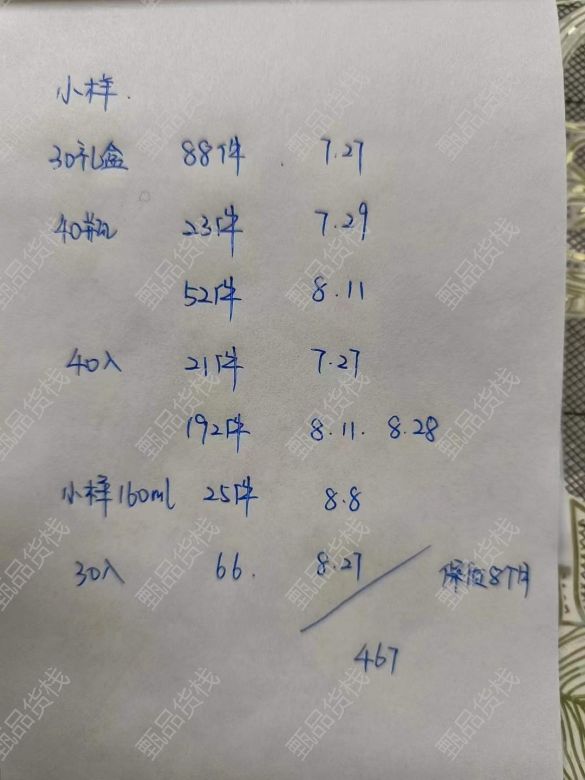 小样.
30礼盒 88件 7.27
40瓶 23件 7.29
52件 8.11
40入 21件 7.27
192件 8.11. 8.28
小样160ml 25件 8.8
30入 66. 8.27 保质8个月
467
甄品货栈